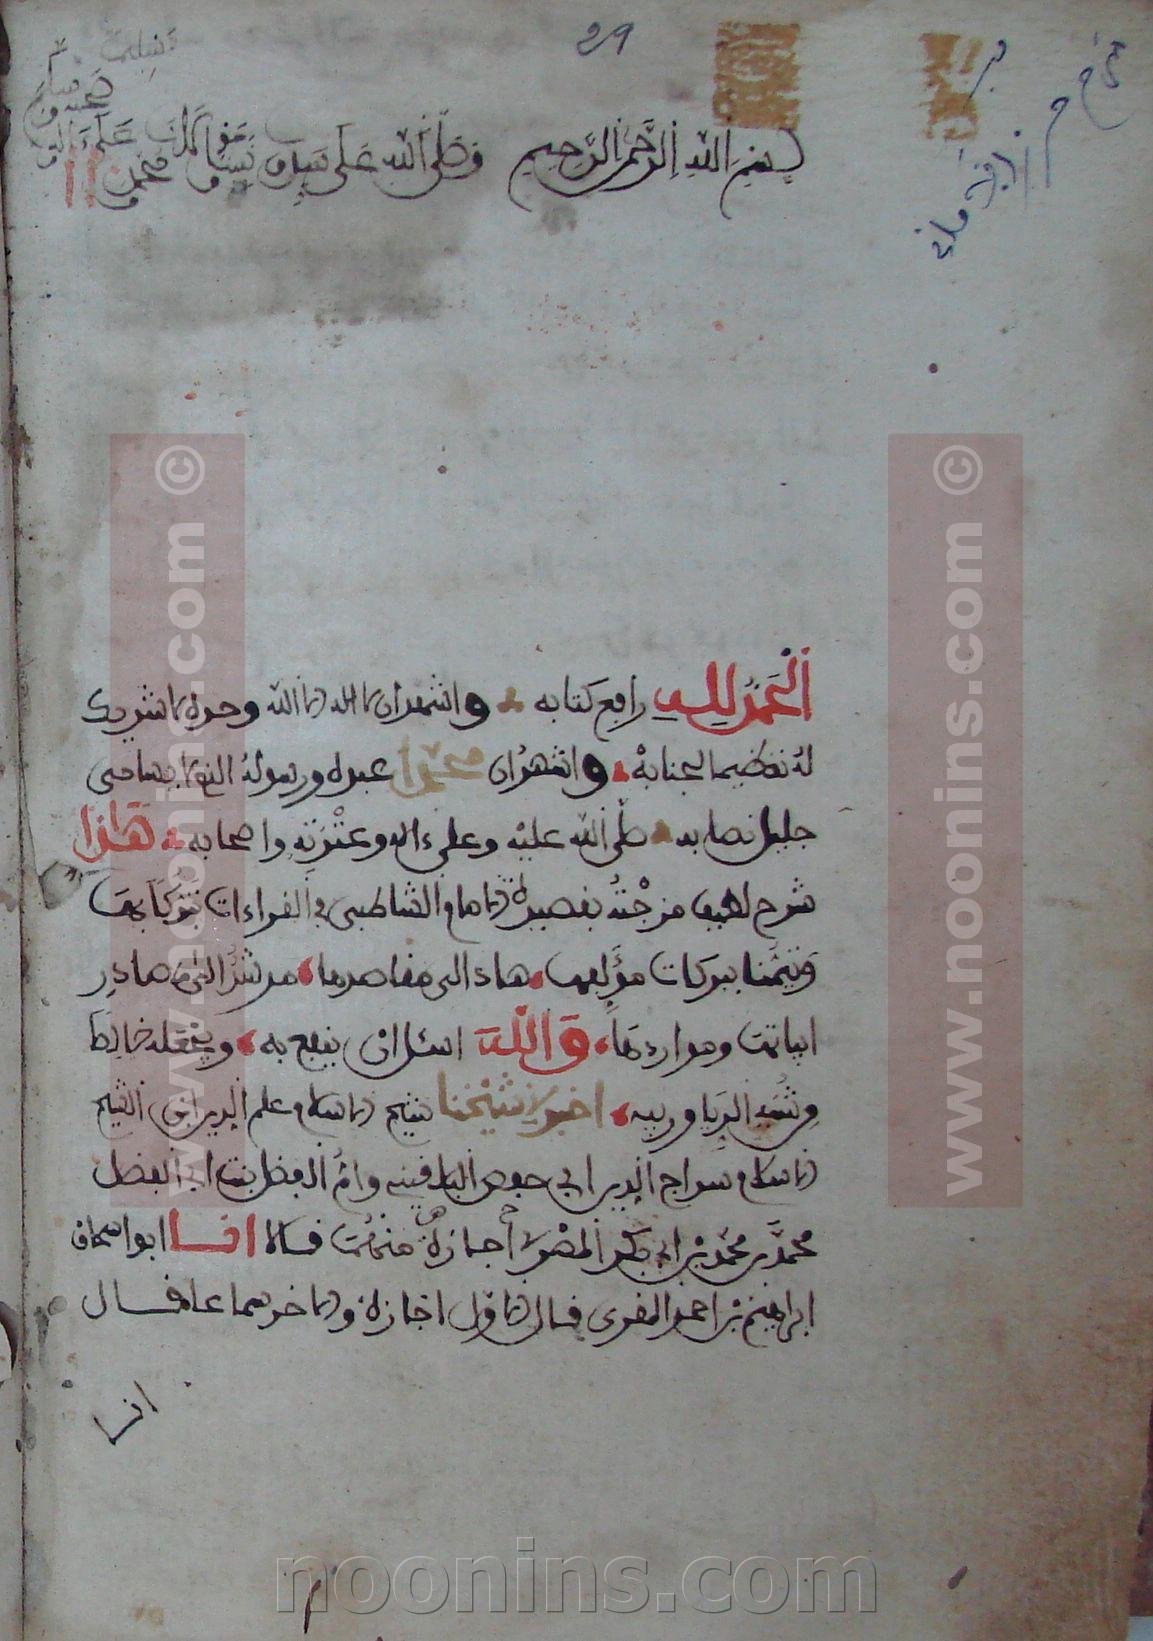 29
بسم الله الرحمن الرحيم وصلى الله على سيدنا ومولانا محمد وعلى آله وصحبه وسلم
الحمد لله رافع كتابه واشهد ان لا اله الا الله وحده لا شريك
له تعظيما لجنابه واشهد ان محمدا عبده ورسوله
جليل نصابه صلى الله عليه وعلى ءاله وعترته واصحابه هذا
شرح لطيف مزجته بقصيدة الامام الشاطبي في القراءات تبركا بها
وتيمنا ببركات مؤلفها هاد الى مقاصدها مرشد الى مصادر
ابياتها ومواردها والله اسئل ان ينفع به ويجعله خالصا
من شبه الريا وريبه اخبرنا شيخنا شيخ الاسلام علم الدين ابن الشيخ
الاسلام سراج الدين ابي حفص البلقيني وام الفضل بنت ابي الفضل
محمد بن محمد بن ابي بكر المصري اجازة منهما قالا انا ابو اسحاق
ابراهيم بن احمد المقرى قال الاول اجازة والاخر سماعا قال
انا
www.noonins.com ©
www.noonins.com ©
noonins.com